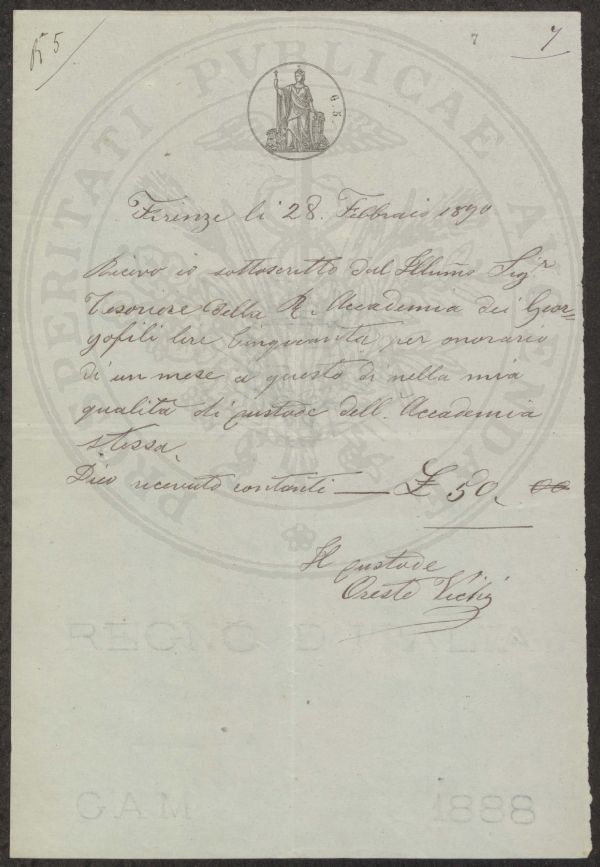 5
7
7
6. 5.
Firenze li 28. Febbraio 1890
Ricevo io sottoscritto dal Illumo Sigr
Tesoriere della R. Accademia dei Geor=
gofili lire Cinquanta per onorario
di un mese a questo dì nella mia
qualità di custode dell. Accademia
stessa.
Dico ricevuto contanti — £ 50. 00
Il custode
Oreste Vichi
PROSPERITATI PVBLICAE AVGENDAE
REGNO D'ITALIA
GAM 1888